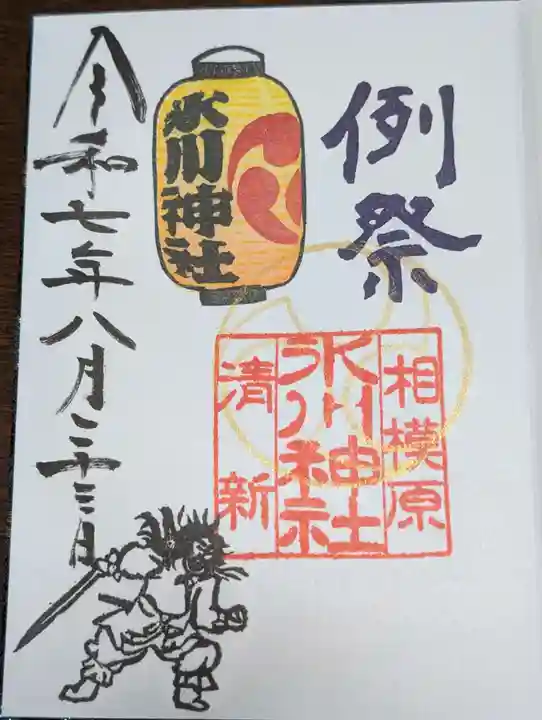 例祭
氷川神社
相模原
氷川神社
清新
令和七年八月二十三日